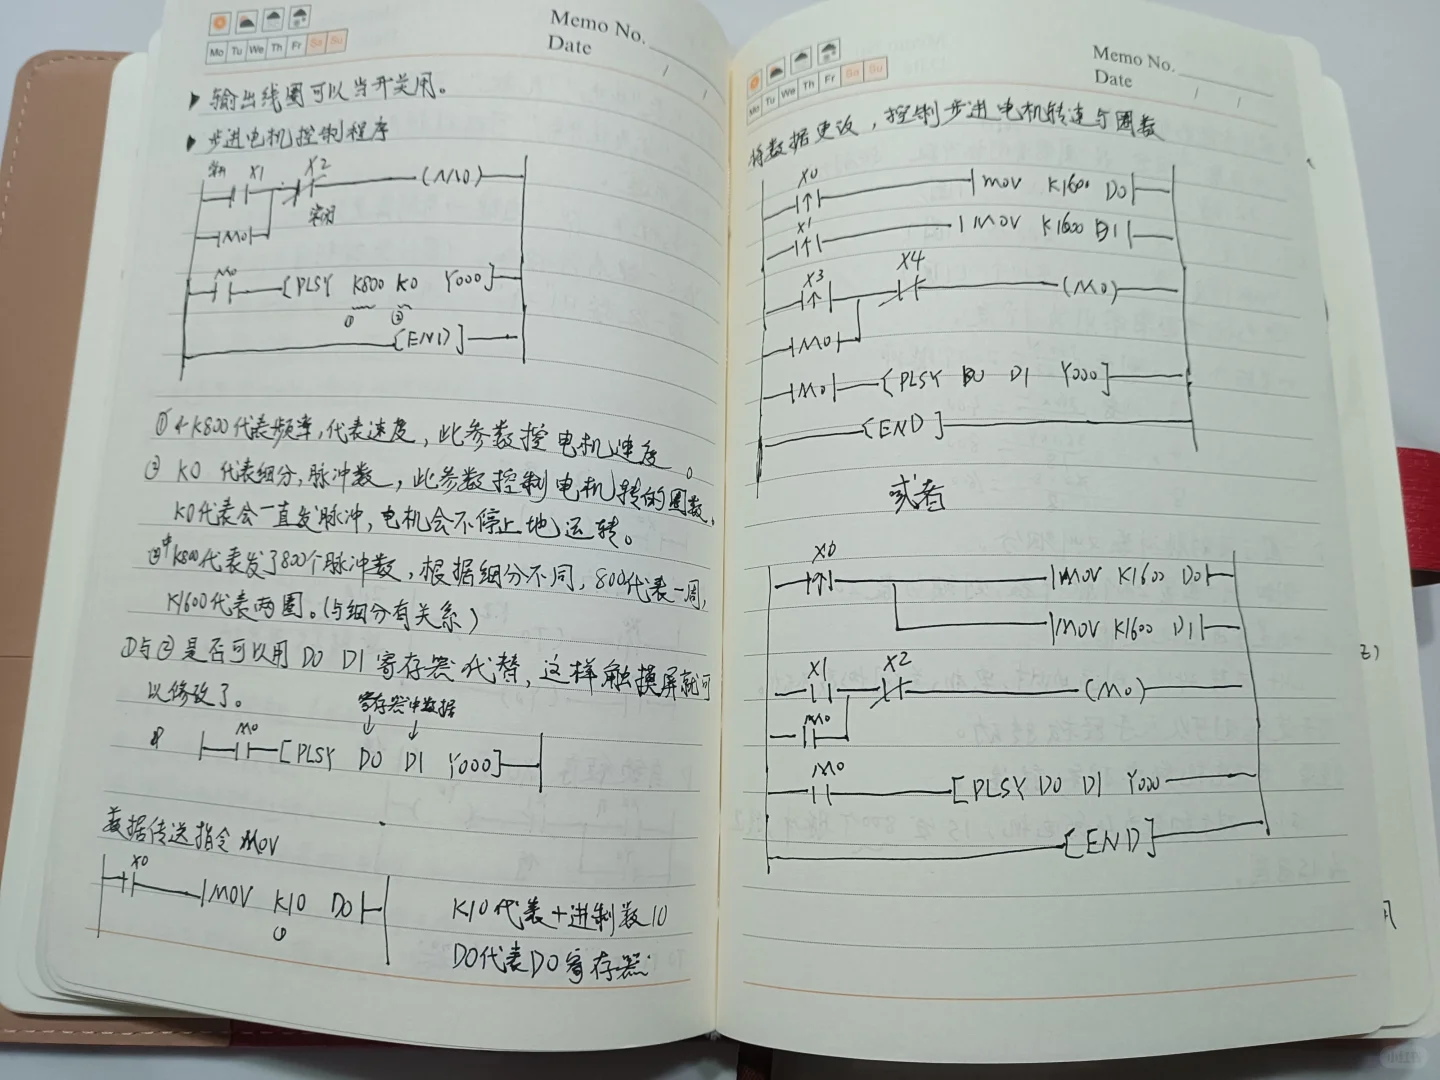 Memo No.
Date
Mo Tu We Th Fr Sa Su
输出线圈可以当开关用。
步进电机控制程序
X1 X2
(M0)
常闭
M0
M0
[PLSY K800 K0 Y000]
① ②
[END]
①中K800代表频率,代表速度,此参数控电机速度。
② K0 代表细分,脉冲数,此参数控制电机转的圈数,
K0代表会一直发脉冲,电机会不停止地运转。
K800代表发了800个脉冲数,根据细分不同,800代表一周,
K1600代表两圈。(与细分有关系)
①与②是否可以用 D0 D1 寄存器代替,这样触摸屏就可
以修改了。
寄存器中数据
M0
[PLSY D0 D1 Y000]
数据传送指令 MOV
X0
MOV K10 D0
K10代表十进制数10
D0代表D0寄存器
Memo No.
Date
Mo Tu We Th Fr Sa Su
将数据更改,控制步进电机转速与圈数
X0
MOV K1600 D0
X1
MOV K1600 D1
X3 X4
(M0)
M0
M0 [PLSY D0 D1 Y000]
[END]
或者
X0
MOV K1600 D0
MOV K1600 D1
X1 X2
(M0)
M0
M0
[PLSY D0 D1 Y000
[END]